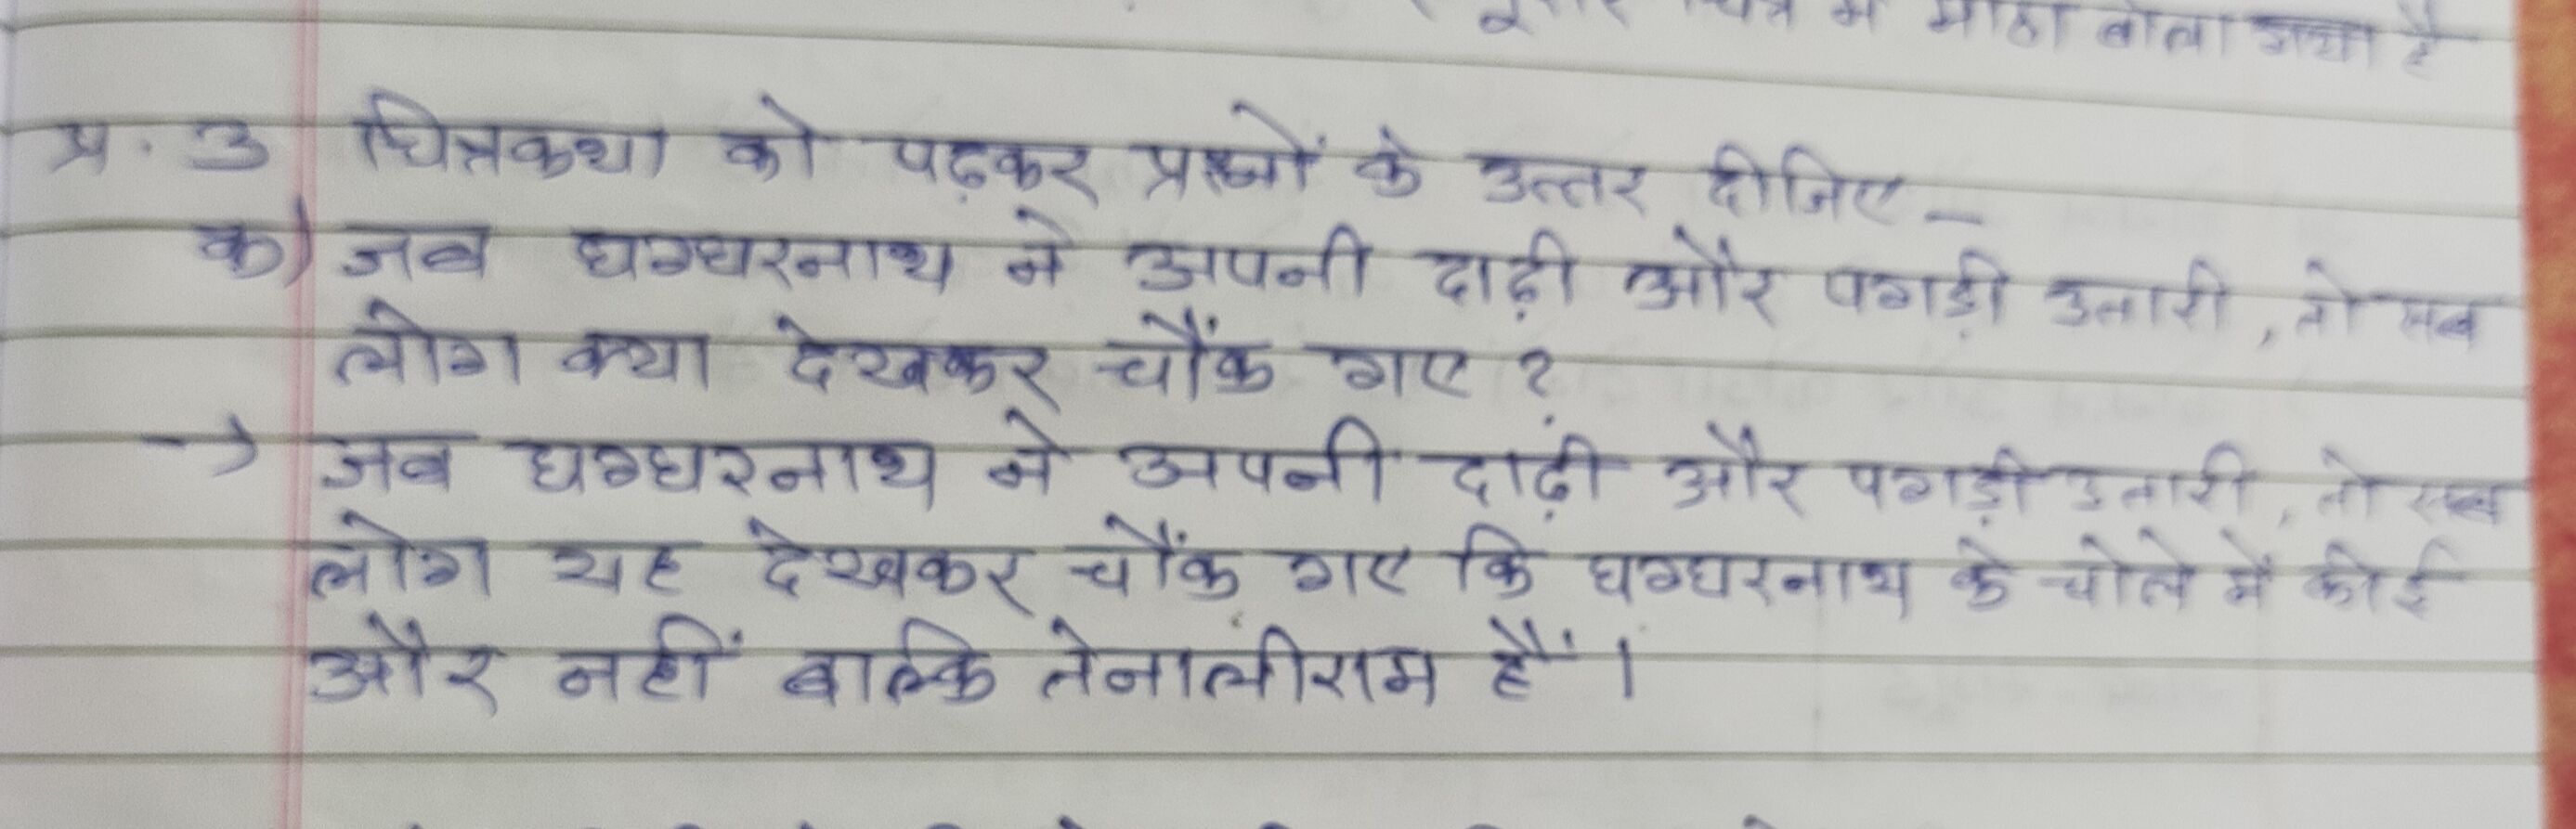 चित्र में मीठा बोला गया है
प्र. 3 चित्रकथा को पढ़कर प्रश्नों के उत्तर दीजिए -
क) जब घग्घरनाथ ने अपनी दाढ़ी और पगड़ी उतारी, तो सब
लोग क्या देखकर चौंक गए ?
→ जब घग्घरनाथ ने अपनी दाढ़ी और पगड़ी उतारी, तो सब
लोग यह देखकर चौंक गए कि घग्घरनाथ के चोले में कोई
और नहीं बल्कि तेनालीराम हैं ।